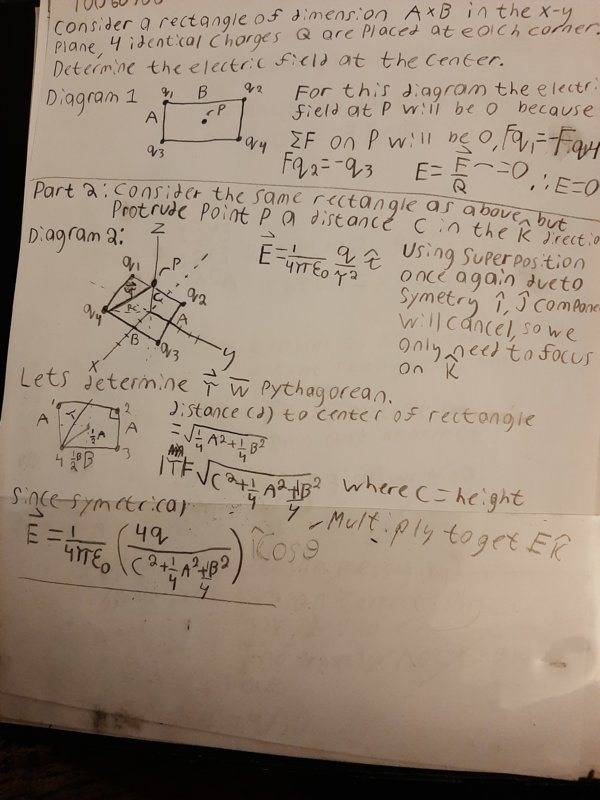 Consider a rectangle of dimension A×B in the x-y
Plane, 4 identical Charges Q are Placed at each corner.
Determine the electric field at the center.
Diagram 1
q1 B q2
A P
q3 q4
For this diagram the electri
field at P will be 0 because
ΣF on P will be 0, Fq1=-Fq4
Fq2=-q3 E=F/Q ~=0, ∴E=0
Part 2: Consider the same rectangle as above, but
Protrude Point P a distance C in the k̂ directio
Diagram 2:
z
q1 P
q4 q2
A
B q3
x y
E⃗=1/4πε0 q/r² r̂
Using Superposition
once again due to
Symetry î, ĵ Compone
will cancel, so we
only need to focus
on k̂
Lets determine r⃗ w̅ Pythagorean.
A 1 2 A
r ½A
4 ½B B 3
distance (d) to center of rectangle
=√(1/4 A²+1/4 B²)
|r|=√(C²+1/4 A²+1/4 B²) where C=height
Since symetrical
E⃗=1/4πε0 (4q/(C²+1/4 A²+1/4 B²)) k̂cosθ
-Multiply to get Ek̂